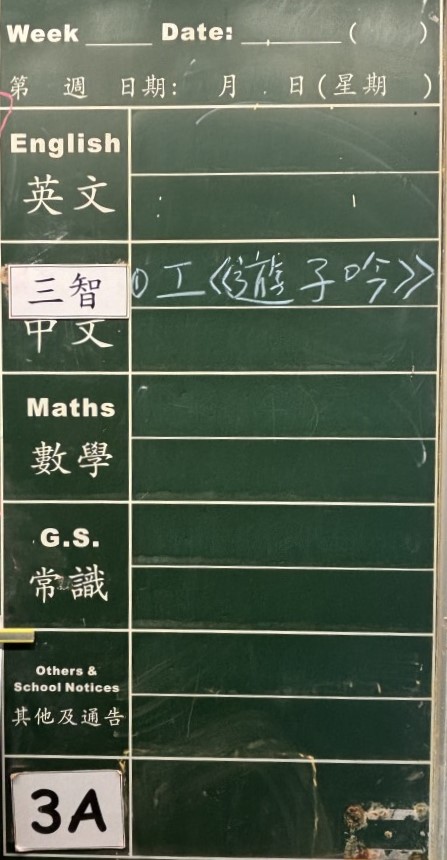 Week ____ Date: ______ ( )
第 週 日期: 月 日(星期 )
English
英文
① 工《遊子吟》
三智
中文
Maths
數學
G.S.
常識
Others &
School Notices
其他及通告
3A